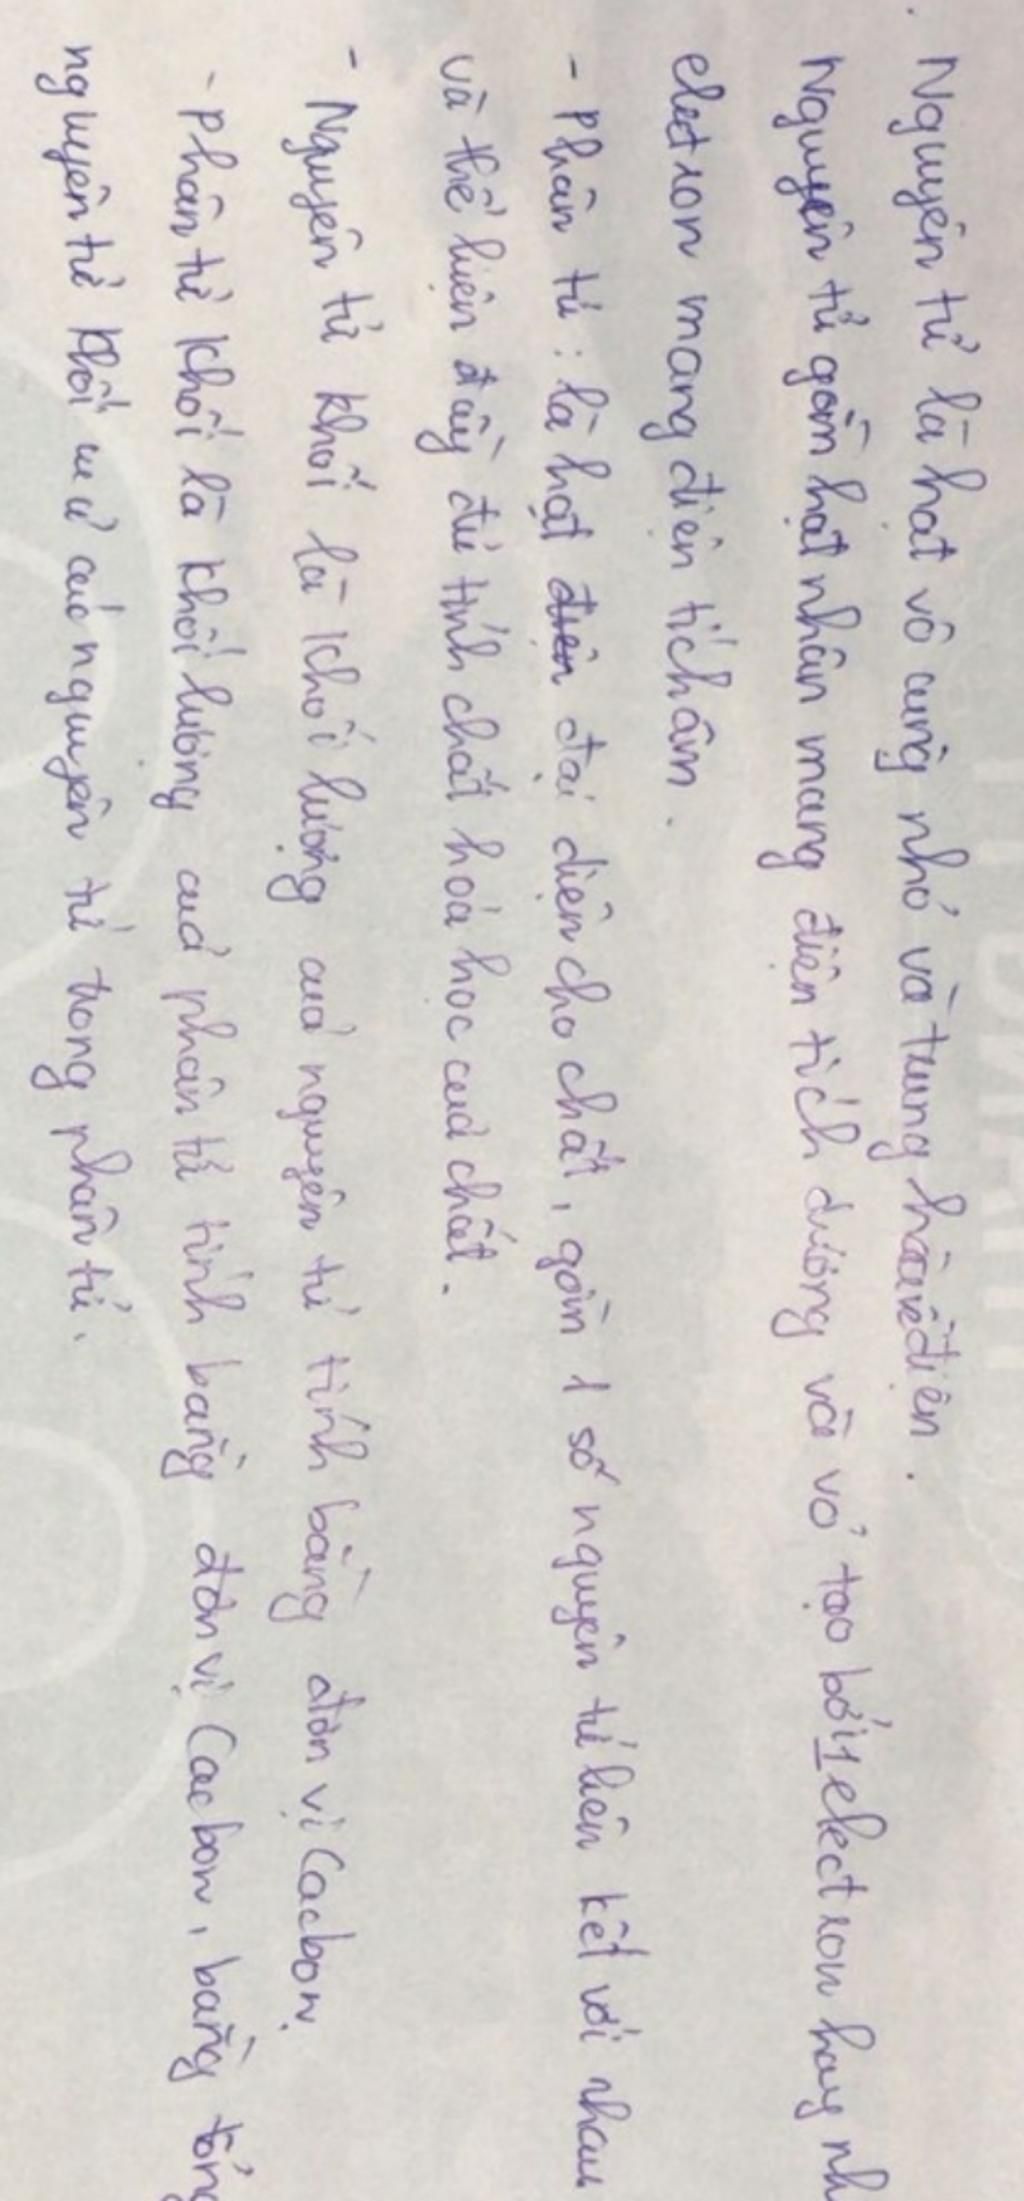 . Nguyên tử là hạt vô cùng nhỏ và trung hoà về điện.
Nguyên tử gồm hạt nhân mang điện tích dương và vỏ tạo bởi 1 electron hay nh
electron mang điện tích âm.
- Phân tử : là hạt điện đại diện cho chất, gồm 1 số nguyên tử liên kết với nhau
và thể hiện đầy đủ tính chất hoá học của chất.
- Nguyên tử khối là khối lượng của nguyên tử tính bằng đơn vị Cacbon.
- Phân tử khối là khối lượng của phân tử tính bằng đơn vị Cacbon, bằng tổng
nguyên tử khối của các nguyên tử trong phân tử.